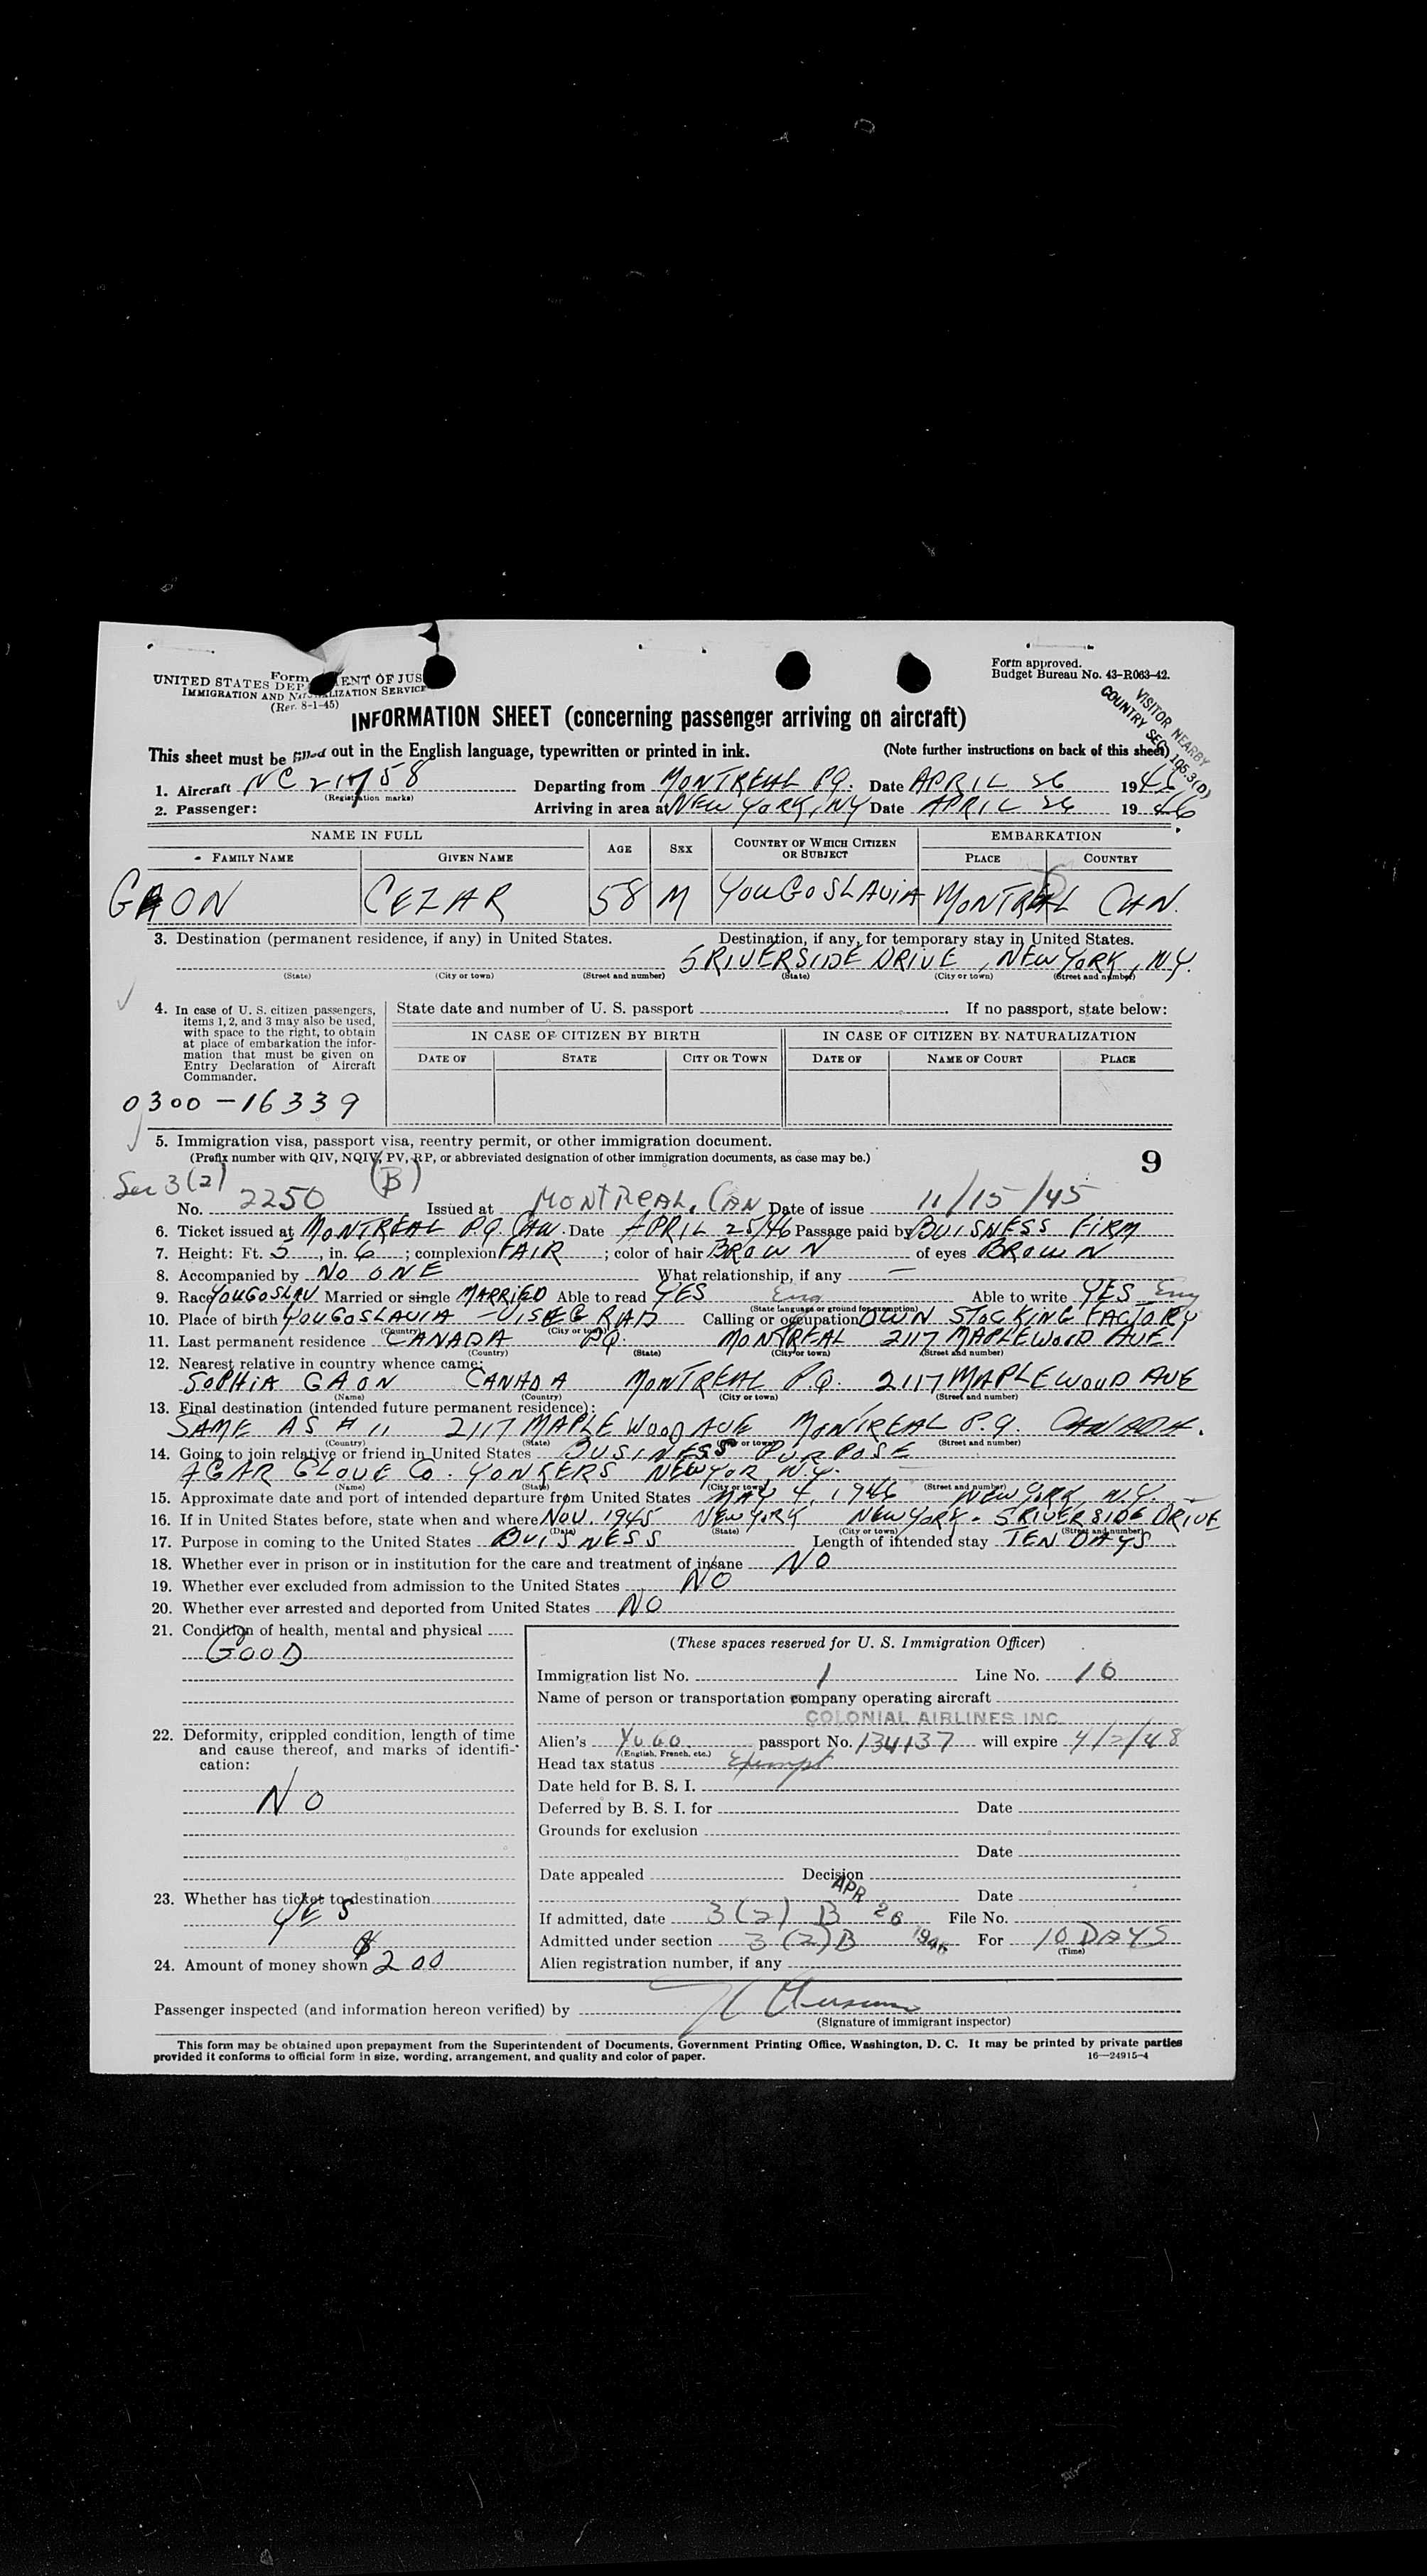 Form
UNITED STATES DEP ENT OF JUS
IMMIGRATION AND NATURALIZATION SERVICE
(Rev. 8-1-45)
Form approved.
Budget Bureau No. 43-R063-42.
VISITOR NEARBY
COUNTRY SEC. 105.3(D)
INFORMATION SHEET (concerning passenger arriving on aircraft)
This sheet must be filled out in the English language, typewritten or printed in ink. (Note further instructions on back of this sheet)
1. Aircraft NC 21758 Departing from MONTREAL P.Q. Date APRIL 26 1946
(Registration marks)
2. Passenger: Arriving in area at NEW YORK, NY Date APRIL 26 1946
NAME IN FULL AGE SEX COUNTRY OF WHICH CITIZEN OR SUBJECT EMBARKATION
FAMILY NAME GIVEN NAME PLACE COUNTRY
GAON CEZAR 58 M YOUGOSLAVIA MONTREAL CAN.
3. Destination (permanent residence, if any) in United States. Destination, if any, for temporary stay in United States.
5 RIVERSIDE DRIVE, NEW YORK, N.Y.
(State) (City or town) (Street and number) (State) (City or town) (Street and number)
4. In case of U. S. citizen passengers, items 1, 2, and 3 may also be used, with space to the right, to obtain at place of embarkation the information that must be given on Entry Declaration of Aircraft Commander.
State date and number of U. S. passport If no passport, state below:
IN CASE OF CITIZEN BY BIRTH IN CASE OF CITIZEN BY NATURALIZATION
DATE OF STATE CITY OR TOWN DATE OF NAME OF COURT PLACE
0300-16339
5. Immigration visa, passport visa, reentry permit, or other immigration document.
(Prefix number with QIV, NQIV, PV, RP, or abbreviated designation of other immigration documents, as case may be.)
9
Sec 3(2) (B)
No. 2250 Issued at MONTREAL, CAN Date of issue 11/15/45
6. Ticket issued at MONTREAL P.Q. CAN. Date APRIL 25/46 Passage paid by BUISNESS FIRM
7. Height: Ft. 5, in. 6; complexion FAIR; color of hair BROWN of eyes BROWN
8. Accompanied by NO ONE What relationship, if any —
9. Race YOUGOSLAV Married or single MARRIED Able to read YES Eng Able to write YES Eng
(State language or ground for exemption)
10. Place of birth YOUGOSLAVIA - VISEGRAD Calling or occupation OWN STOCKING FACTORY
(Country) (City or town)
11. Last permanent residence CANADA P.Q. MONTREAL 2117 MAPLEWOOD AVE
(Country) (State) (City or town) (Street and number)
12. Nearest relative in country whence came:
SOPHIA GAON CANADA MONTREAL P.Q. 2117 MAPLEWOOD AVE
(Name) (Country) (City or town) (Street and number)
13. Final destination (intended future permanent residence):
SAME AS # 11 2117 MAPLEWOOD AVE MONTREAL P.Q. CANADA.
(Country) (State) (City or town) (Street and number)
14. Going to join relative or friend in United States BUSINESS PURPOSE
AGAR GLOVE CO. YONKERS NEWYOR, N.Y.
(Name) (State) (City or town) (Street and number)
15. Approximate date and port of intended departure from United States MAY 4, 1946 NEW YORK, N.Y.
16. If in United States before, state when and where NOV. 1945 NEW YORK NEW YORK - 5 RIVERSIDE DRIVE
(Date) (State) (City or town) (Street and number)
17. Purpose in coming to the United States BUISNESS Length of intended stay TEN DAYS
18. Whether ever in prison or in institution for the care and treatment of insane NO
19. Whether ever excluded from admission to the United States NO
20. Whether ever arrested and deported from United States NO
21. Condition of health, mental and physical
GOOD
22. Deformity, crippled condition, length of time and cause thereof, and marks of identification:
NO
23. Whether has ticket to destination
YES
24. Amount of money shown $200
(These spaces reserved for U. S. Immigration Officer)
Immigration list No. 1 Line No. 10
Name of person or transportation company operating aircraft
COLONIAL AIRLINES INC
Alien's YUGO. passport No. 134137 will expire 4/2/48
(English, French, etc.)
Head tax status Exempt
Date held for B. S. I.
Deferred by B. S. I. for Date
Grounds for exclusion
Date
Date appealed Decision
Date
If admitted, date 3(2) B APR 26 1946 File No.
Admitted under section 3(2)B For 10 DAYS
(Time)
Alien registration number, if any
Passenger inspected (and information hereon verified) by
(Signature of immigrant inspector)
This form may be obtained upon prepayment from the Superintendent of Documents, Government Printing Office, Washington, D. C. It may be printed by private parties
provided it conforms to official form in size, wording, arrangement, and quality and color of paper.
16—24915-4